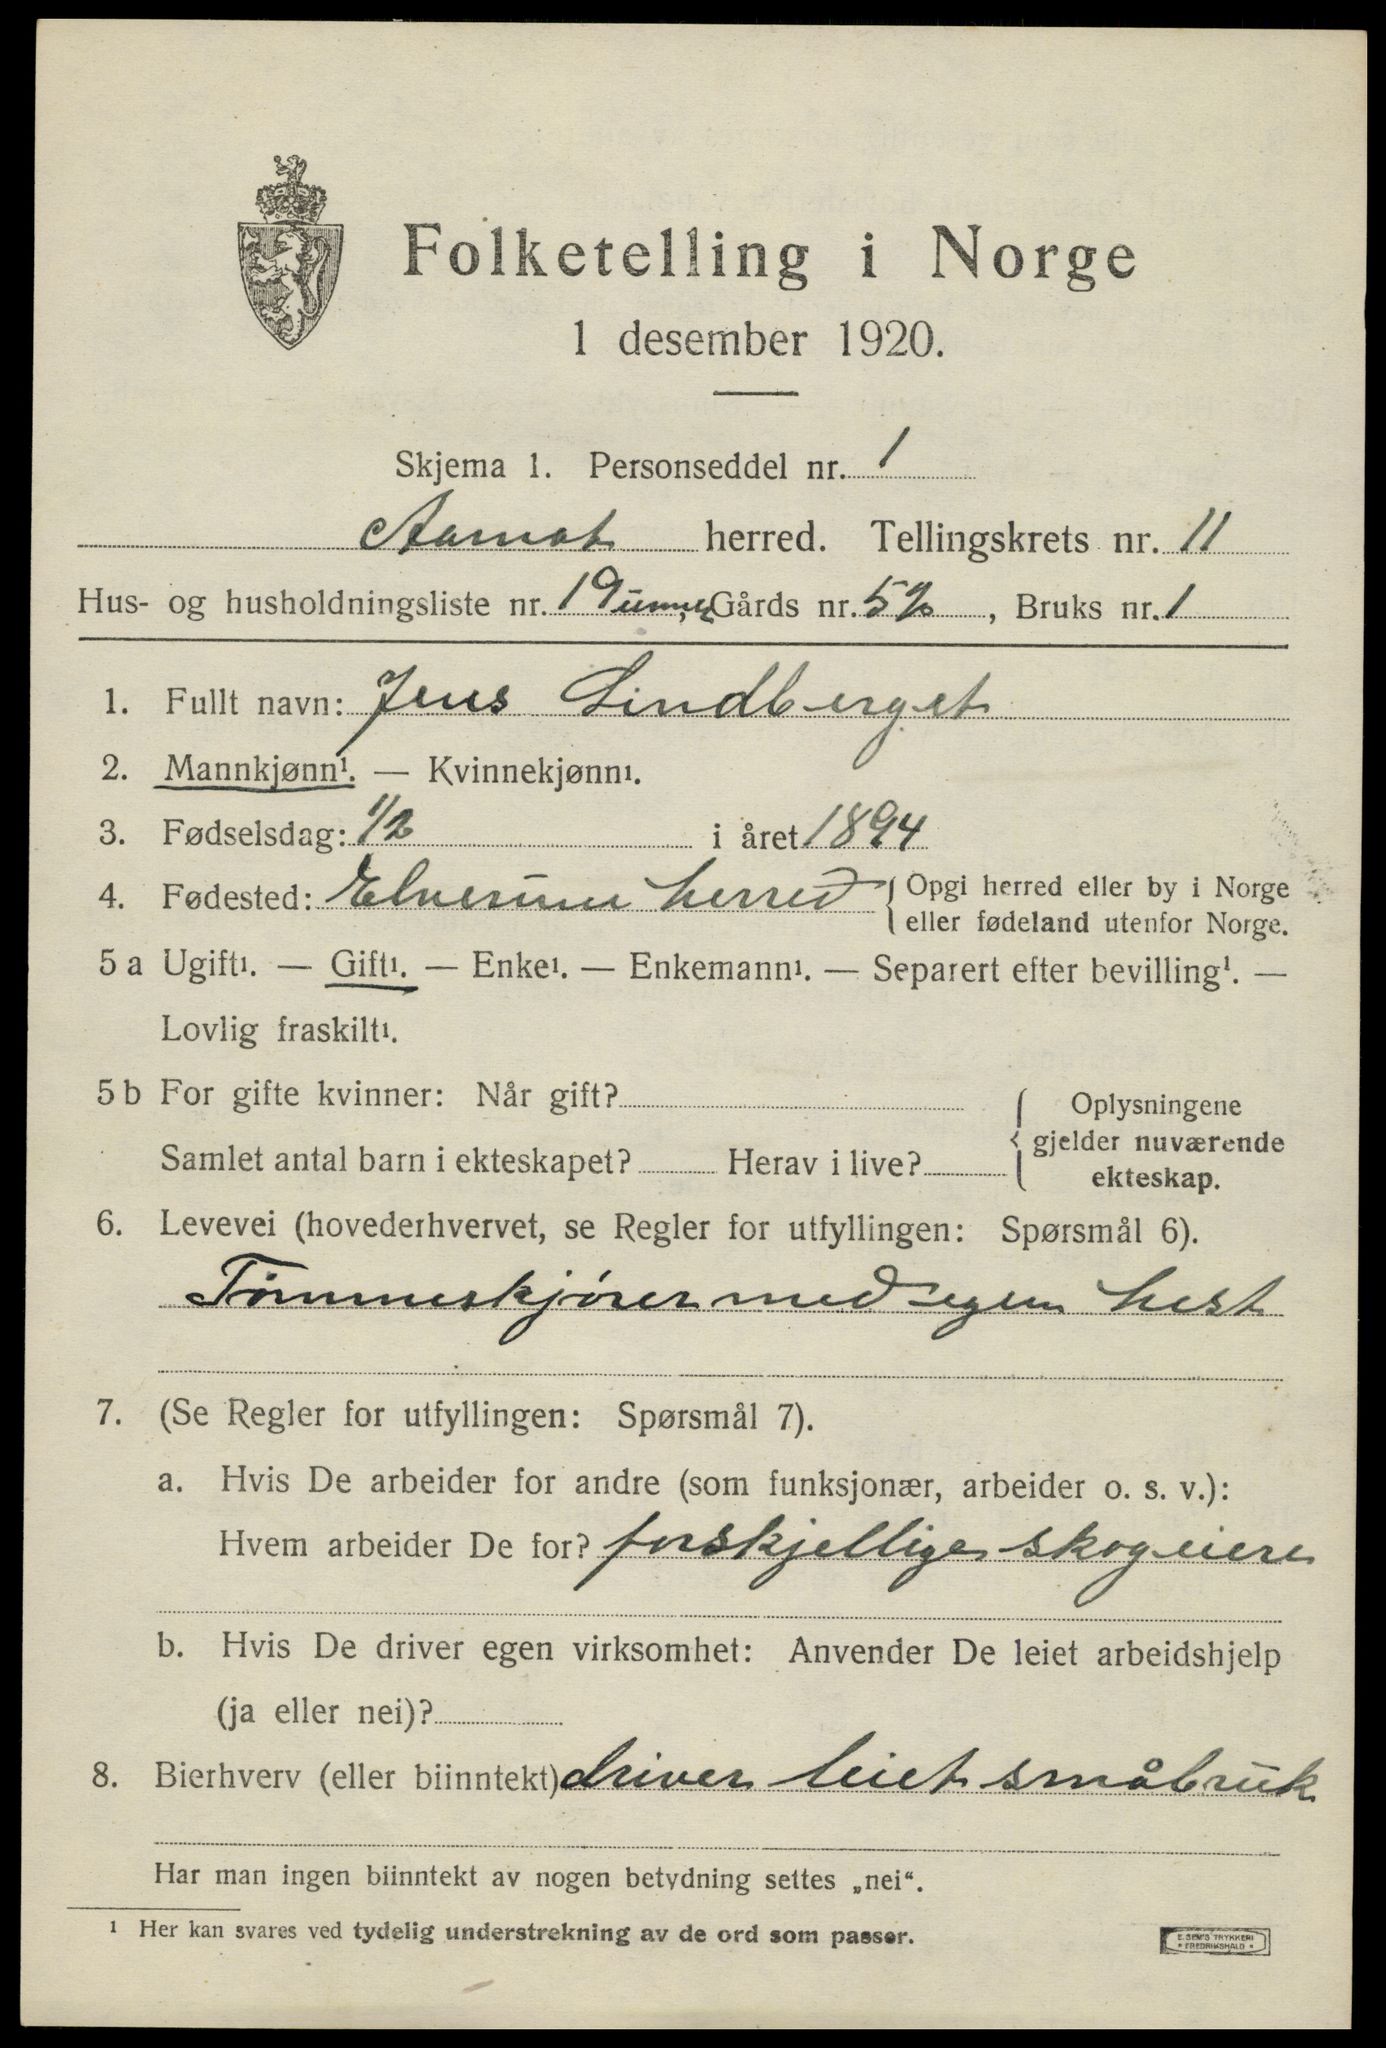 Folketelling i Norge
1 desember 1920.
Skjema 1. Personseddel nr. 1
Aamot herred. Tellingskrets nr. 11
Hus- og husholdningsliste nr. 19 Gårds nr. , Bruks nr. 1
1. Fullt navn: Jens Lindberget
2. Mannkjønn¹. — Kvinnekjønn¹.
3. Fødselsdag: 1/2 i året 1894
4. Fødested: Elverum herred { Opgi herred eller by i Norge
eller fødeland utenfor Norge.
5 a Ugift¹. — Gift¹. — Enke¹. — Enkemann¹. — Separert efter bevilling¹. —
Lovlig fraskilt¹.
5 b For gifte kvinner: Når gift?
Samlet antal barn i ekteskapet? Herav i live?
{ Oplysningene
gjelder nuværende
ekteskap.
6. Levevei (hovederhvervet, se Regler for utfyllingen: Spørsmål 6).
Tømmeskjører med egen hest
7. (Se Regler for utfyllingen: Spørsmål 7).
a. Hvis De arbeider for andre (som funksjonær, arbeider o. s. v.):
Hvem arbeider De for? forskjellige skogeiere
b. Hvis De driver egen virksomhet: Anvender De leiet arbeidshjelp
(ja eller nei)?
8. Bierhverv (eller biinntekt) driver leiet småbruk
Har man ingen biinntekt av nogen betydning settes „nei“.
¹ Her kan svares ved tydelig understrekning av de ord som passer.
E. SEM'S TRYKKERI
• FREDRIKSHALD •